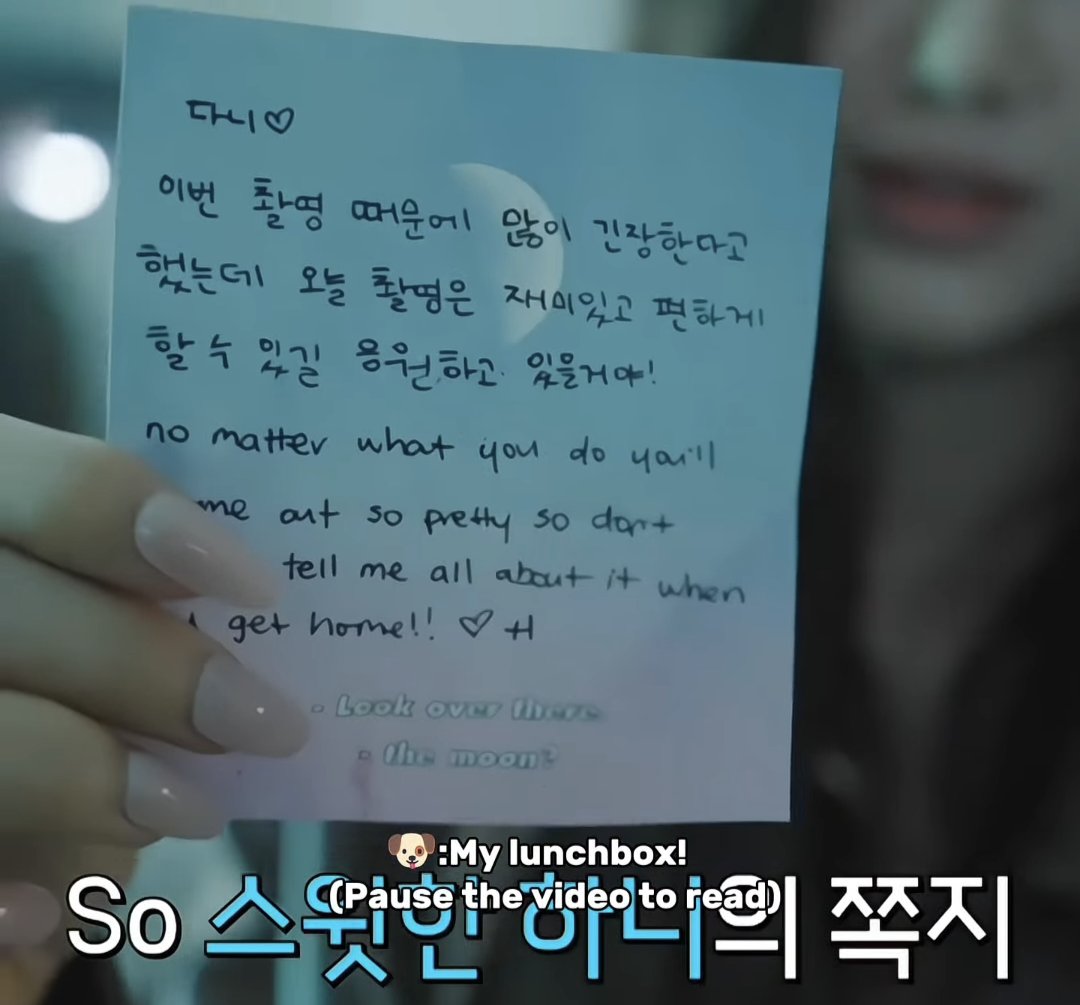 다니♡
이번 촬영 때문에 많이 긴장한다고
했는데 오늘 촬영은 재미있고 편하게
할 수 있길 응원하고 있을거야!
no matter what you do you'll
me out so pretty so don't
tell me all about it when
get home!! ♡ H
- Look over there
- the moon?
🐶:My lunchbox!
(Pause the video to read)
So 스윗한 하니의 쪽지